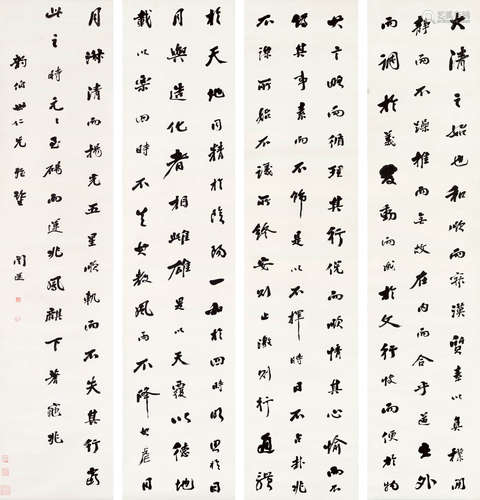 大清之始也和順而寂漠質直以真樸閒
靜而不躁推而無故在內而合乎道出外
而調於義發動而成於文行快而便於物
其言略而循理其行侻而順情其心愉而不
偽其事素而不飾是以不擇時日不占卦兆
不謀所始不議所終安則止激則行通體
於天地同精於陰陽一和於四時明照於日
月與造化者相雌雄是以天覆以德地
載以樂四時不失其敘風雨不降其虐日
月淋清而揚光五星順軌而不失其行當
此之時元元至碭而運兆鳳麟下蓍龜兆
伯世仁兄雅鑒
闓運